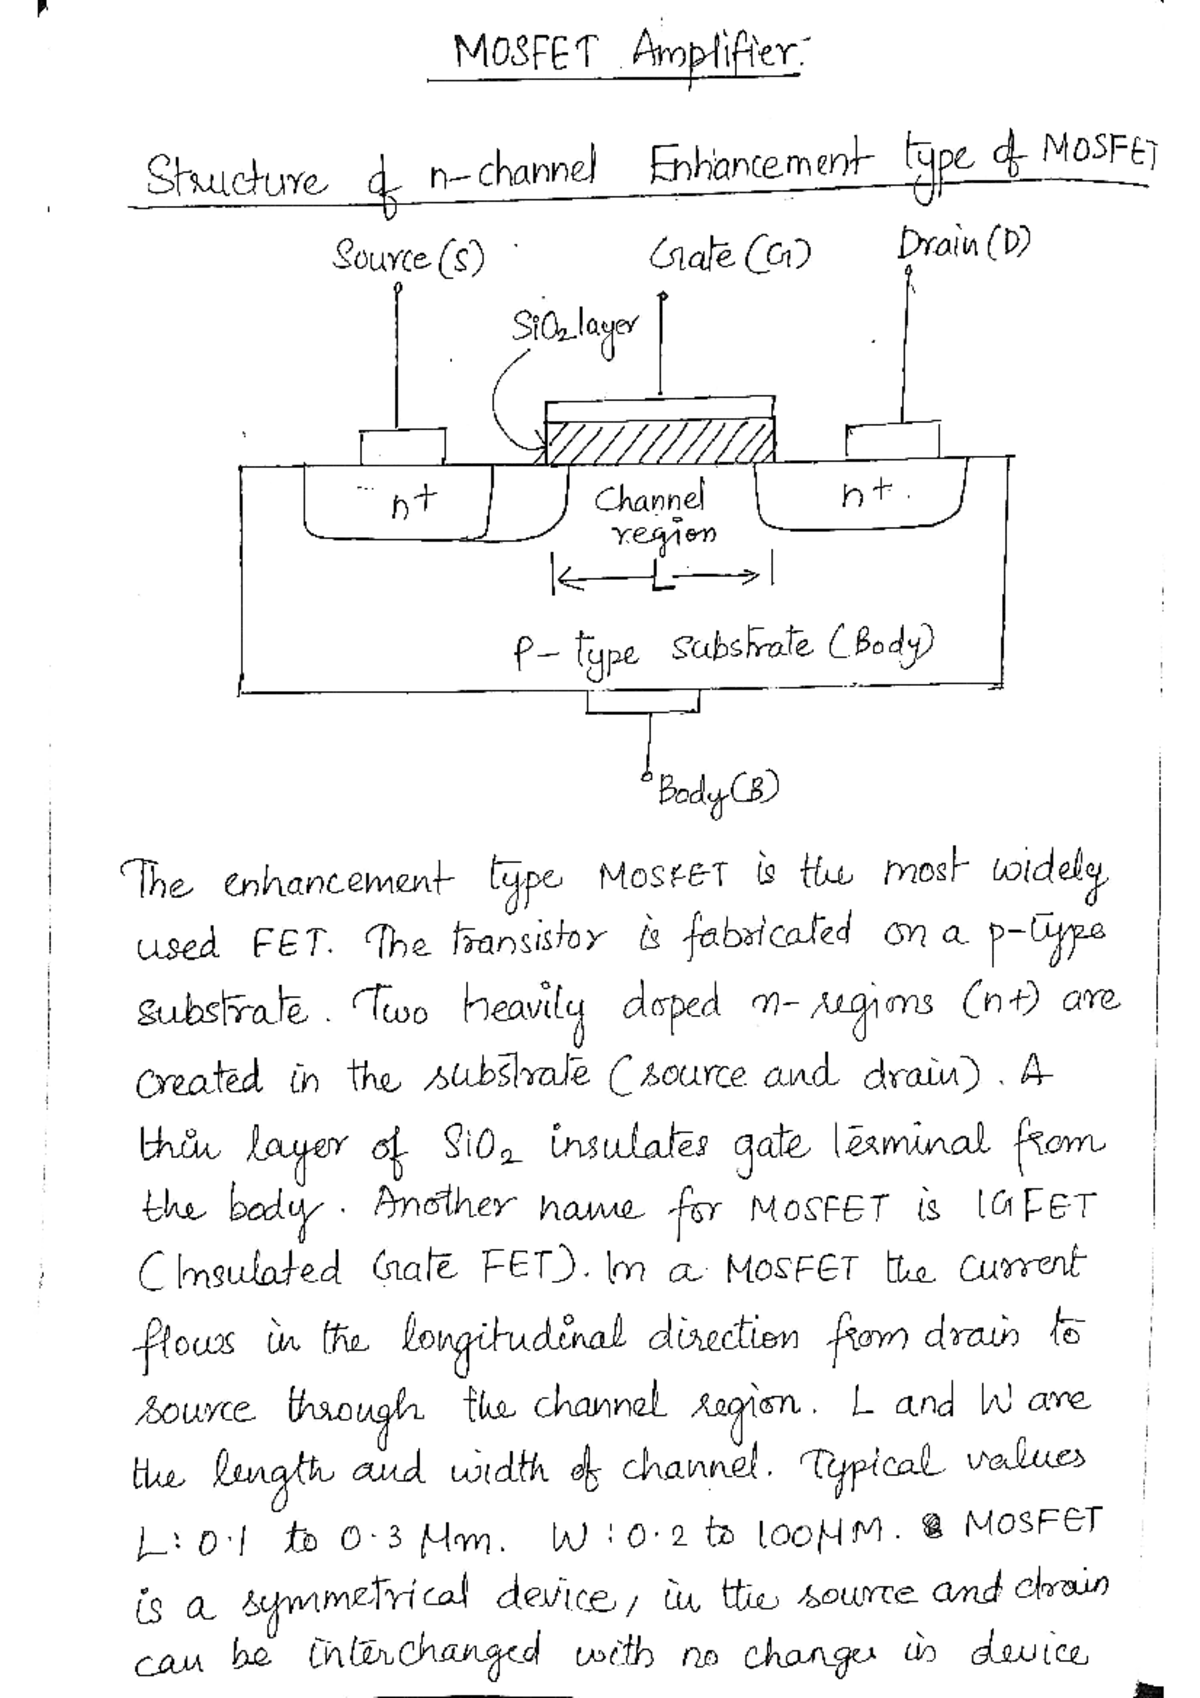 MOSFET Amplifier:-
Structure of n-channel Enhancement type of MOSFET
Source (S)
Gate (G)
Drain (D)
SiO2 layer
n+
Channel
region
n+.
L
P- type substrate (Body)
Body (B)
The enhancement type MOSFET is the most widely
used FET. The transistor is fabricated on a p-type
substrate. Two heavily doped n- regions (n+) are
created in the substrate (source and drain). A
thin layer of SiO2 insulates gate terminal from
the body. Another name for MOSFET is IGFET
(Insulated Gate FET). In a MOSFET the current
flows in the longitudinal direction from drain to
source through the channel region. L and W are
the length and width of channel. Typical values
L: 0.1 to 0.3 μm. W: 0.2 to 100 μM. MOSFET
is a symmetrical device, in the source and drain
can be interchanged with no changes in device